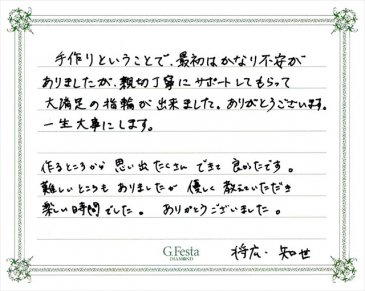 手作りということで、最初はかなり不安が
ありましたが、親切丁寧にサポートしてもらって
大満足の指輪が出来ました。ありがとうございます。
一生大事にします。
作るところから思い出たくさんできて良かたです。
難しいところもありましたが優しく教えていただき
楽しい時間でした。ありがとうございました。
G.Festa
DIAMOND
将広・知世